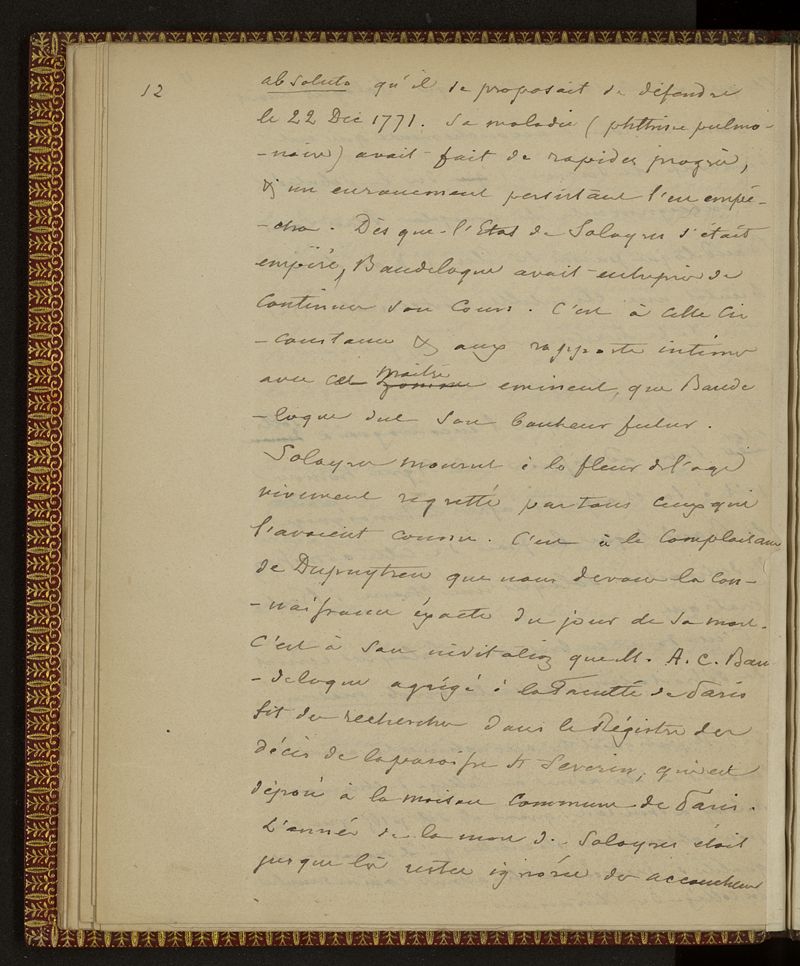 12
absoluto qu'il se proposait de défendre
le 22 Déc 1771. Sa maladie (phthisie pulmo-
-naire) avait fait de rapides progrès,
& un enrouement persistant l'en empê-
-cha. Dès que l'Etat de Solayres s'était
empiré, Baudeloque avait entrepris de
Continuer son Cours. C'est à cette Cir
-constance & aux rapports intimes
avec cet maître eminent, que Baude
-loque dut son bonheur futur.
Solayres mourut à la fleur de l'age
vivement regretté par tous ceux qui
l'avaient connu. C'est à la Complaisance
de Dupuytren que nous devons la Con-
-naissance éxacte du jour de sa mort.
C'est à son invitation que M. A. C. Bau
-deloque agrégé à la Faculté de Paris
fit des recherches dans le Régistre des
décès de la paroisse St Severin, qui est
déposé à la maison Commune de Paris.
L'année de la mort de Solayres était
jusque là restée ignorée des accoucheurs